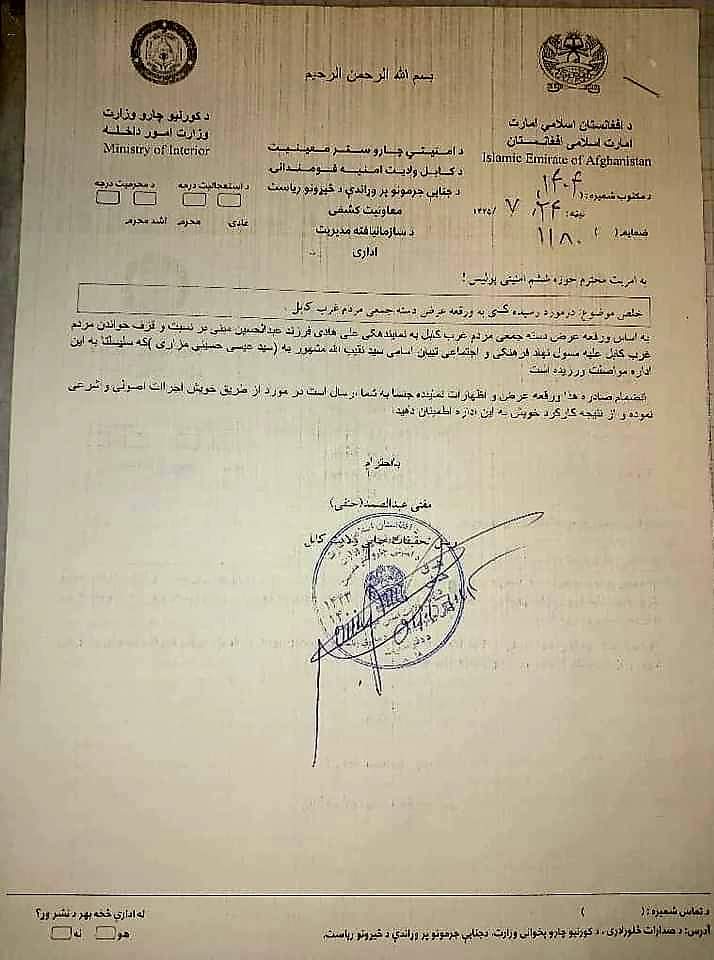 بسم الله الرحمن الرحيم
د افغانستان اسلامي امارت
امارت اسلامی افغانستان
Islamic Emirate of Afghanistan
د مکتوب شمیره: ( ۱۴۰۴ )
نیټه: ۲۴ / ۷ / ۱۴۴۵
ضمایم ( )
۱۱۸۰
د امنیتي چارو ستر معینیت
د کابل ولایت امنیه قوماندانی
د جنایي جرمونو پر وړاندې د څېړنو ریاست
معاونیت کشفی
د سازمانیافته مدیریت
اداری
د کورنیو چارو وزارت
وزارت امور داخله
Ministry of Interior
د استعجالیت درجه د محرمیت درجه
عادی محرم اشد محرم
به آمریت محترم حوزه ششم امنیتی پولیس !
خلص موضوع: درمورد رسیده گی به ورقعه عرض دسته جمعی مردم غرب کابل .
به اساس ورقعه عرض دسته جمعی مردم غرب کابل به نمایندهگی علی هادی فرزند عبدالحسین مبنی بر نسبت و قزف خواندن مردم
غرب کابل علیه مسول نهاد فرهنگی و اجتماعی تبیان اسامی سید نقیب الله مشهور به (سید عیسی حسینی مزاری )که سلیسلتا به این
اداره مواصلت ورزیده است
انضمام صادره هذا ورقعه عرض و اظهارات نماینده جنسا به شما ارسال است در مورد از طریق خویش اجرات اصولی و شرعی
نموده و از نتیجه کارکرد خویش به این اداره اطمینان دهید.
بااحترام
مفتی عبدالصمد(حنفی)
رییس تحقیقات جنایی ولایت کابل
د تماس شمیره : ( )
آدرس: د صدارات څلورلاري ، د کورنیو چارو پخوانی وزارت، دجنایي جرمونو پر وړاندې د څېړنو ریاست.
له ادارې څخه بهر د نشر وړ؟
هو نه